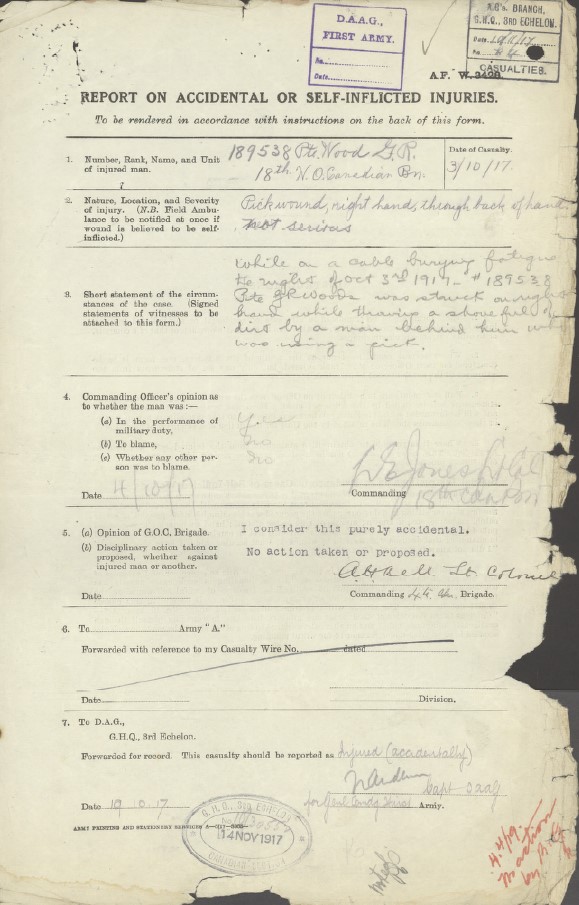 D.A.A.G.,
FIRST ARMY.
No.
Date
A.G's. BRANCH,
G.H.Q., 3RD ECHELON.
Date
No.
CASUALTIES.
A.F. W.3428
REPORT ON ACCIDENTAL OR SELF-INFLICTED INJURIES.
To be rendered in accordance with instructions on the back of this form.
1. Number, Rank, Name, and Unit
of injured man.
189538 Pte. Wood G.R.
18th Canadian Bn.
Date of Casualty.
3/10/17.
2. Nature, Location, and Severity
of injury. (N.B. Field Ambu-
lance to be notified at once if
wound is believed to be self-
inflicted.)
Pick wound, right hand, through back of hand
not serious
3. Short statement of the circum-
stances of the case. (Signed
statements of witnesses to be
attached to this form.)
While on a cable burying fatigue
the night of Oct 3rd 1917 - # 189538
Pte GR Woods was struck on right
hand while throwing a shovelful of
dirt by a man behind him who
was using a pick.
4. Commanding Officer's opinion as
to whether the man was:—
(a) In the performance of
military duty,
Yes
(b) To blame,
No
(c) Whether any other per-
son was to blame.
No
Date 4/10/17
Jones Lt Col
Commanding 18th Can Bn
5. (a) Opinion of G.O.C. Brigade.
I consider this purely accidental.
(b) Disciplinary action taken or
proposed, whether against
injured man or another.
No action taken or proposed.
Lt. Colonel
Date
Commanding 4th Brigade.
6. To Army "A."
Forwarded with reference to my Casualty Wire No. dated
Date
Division.
7. To D.A.G.,
G.H.Q., 3rd Echelon.
Forwarded for record. This casualty should be reported as Injured (accidentally)
Capt DAAG
Date 19.10.17
for Genl Comdg First Army.
ARMY PRINTING AND STATIONERY SERVICES
G.H.Q., 3RD ECHELON
14 NOV 1917
CANADIAN SECTION
No action